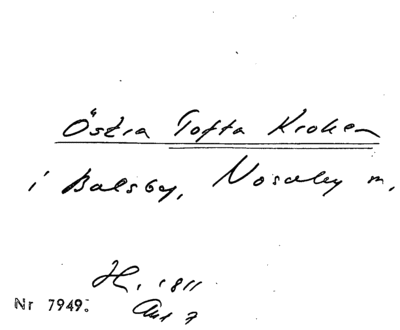 Östra Tofta Kroken
i Balsby, Nosaby m.
H. 1811
Akt 7
Nr 7949.